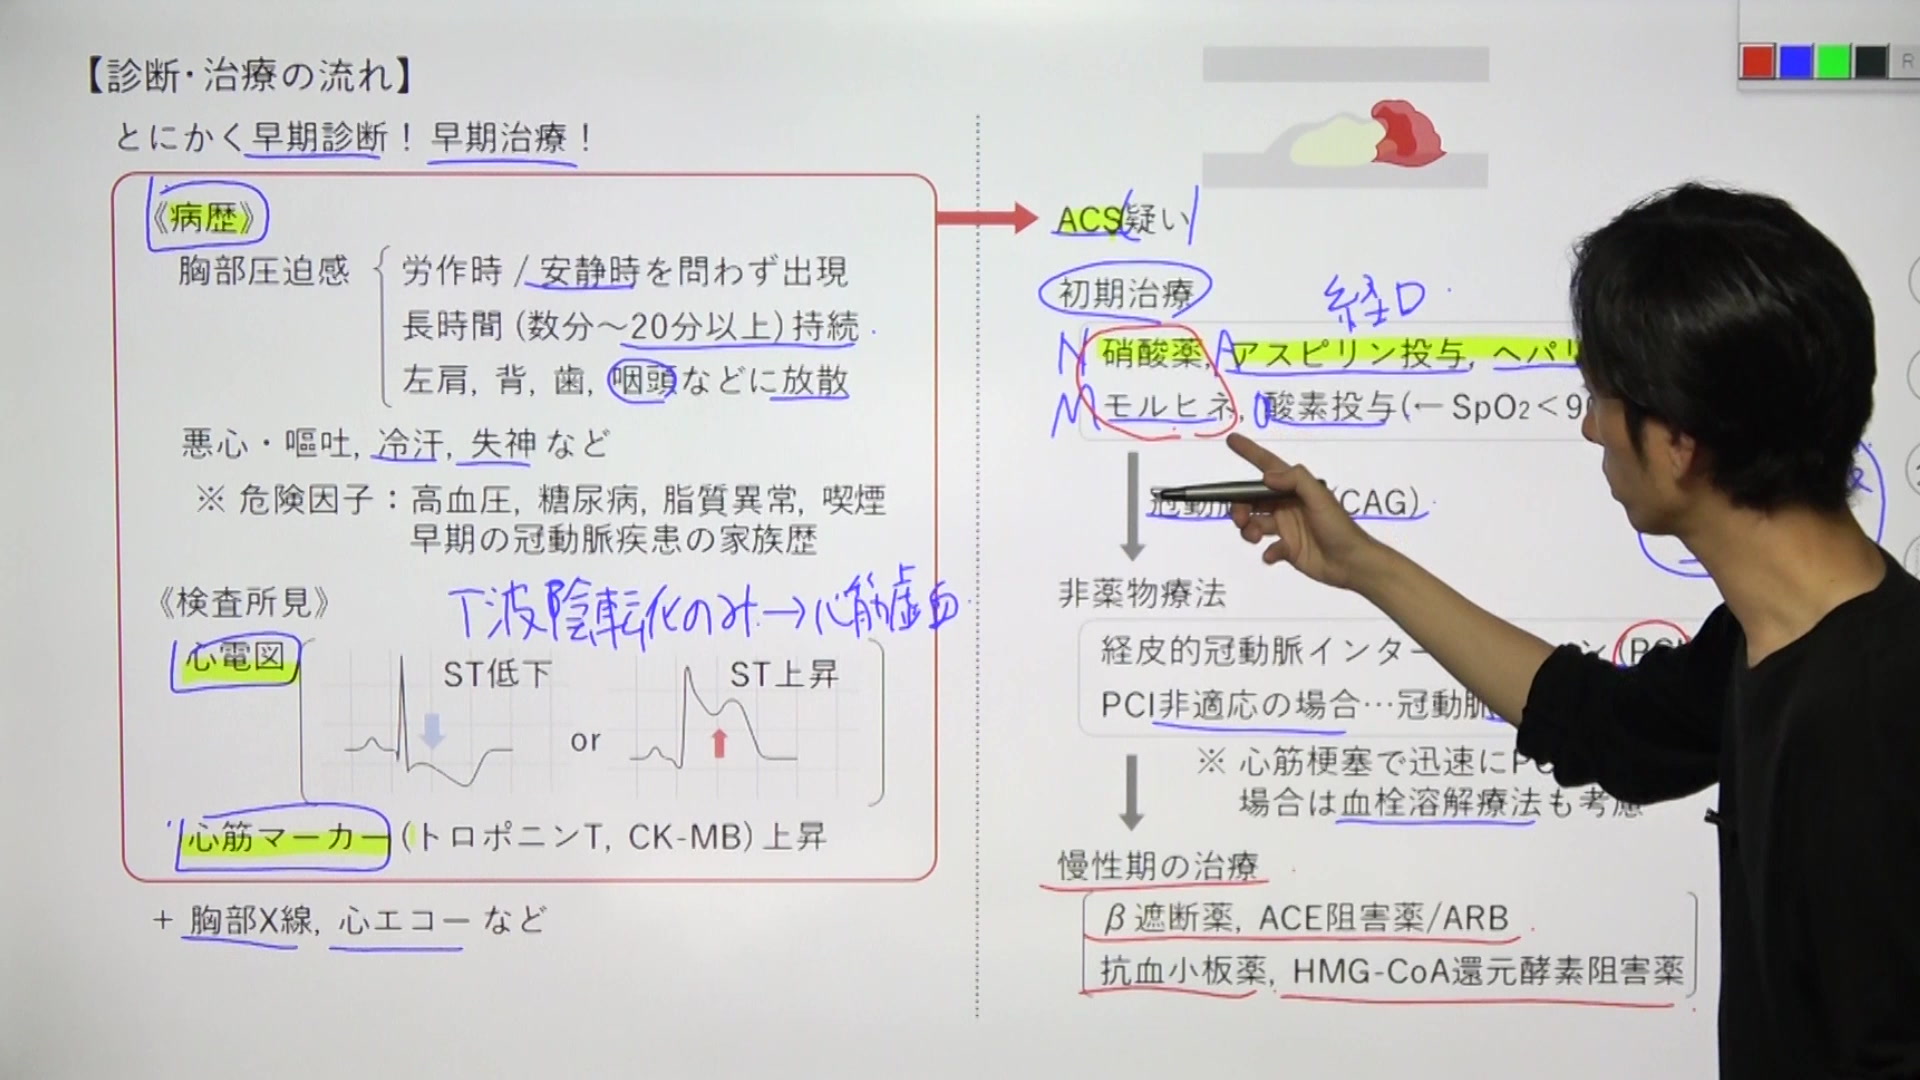 【診断・治療の流れ】
とにかく早期診断！ 早期治療！
《病歴》
胸部圧迫感
労作時 / 安静時を問わず出現
長時間 (数分～20分以上) 持続
左肩, 背, 歯, 咽頭などに放散
悪心・嘔吐, 冷汗, 失神 など
※ 危険因子：高血圧, 糖尿病, 脂質異常, 喫煙
早期の冠動脈疾患の家族歴
《検査所見》
T波陰転化のみ→心筋虚血
心電図
ST低下
or
ST上昇
心筋マーカー (トロポニンT, CK-MB) 上昇
+ 胸部X線, 心エコー など
ACS疑い
初期治療
経口
N 硝酸薬, A アスピリン投与, ヘパリ
M モルヒネ, O 酸素投与 (← SpO2 < 9
(CAG)
非薬物療法
経皮的冠動脈インター ン (PCI
PCI非適応の場合…冠動脈
※ 心筋梗塞で迅速にPC
場合は血栓溶解療法も考慮
慢性期の治療
β遮断薬, ACE阻害薬/ARB
抗血小板薬, HMG-CoA還元酵素阻害薬
R